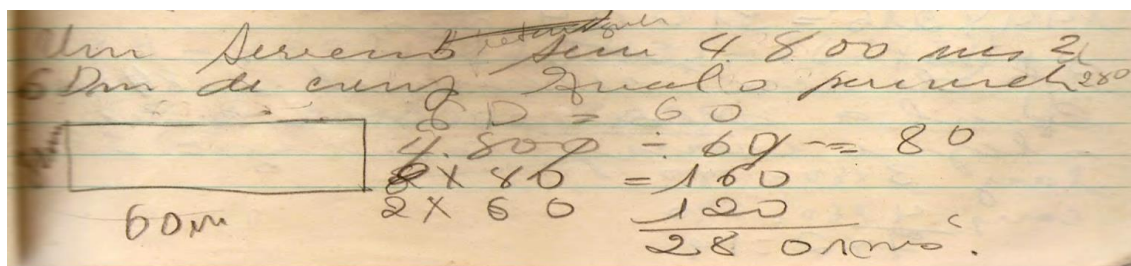 Um terreno retangular tem 4.800 ms 2
6 Dm de cump Qual o perimet 280
6 D = 60
4.800 ÷ 60 = 80
2 x 80 = 160
2 x 60 120
60m
280